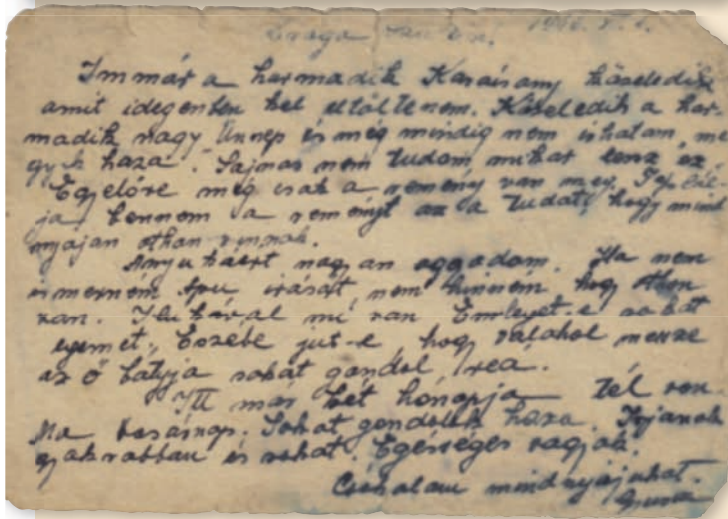 1946. X. 1.
Immár a harmadik Karácsony közeledik
amit idegenben kel eltöltenem. Közeledik a har
madik nagy Ünnep és még mindig nem irhatam, me
gyek haza. Sajnos nem tudom mikor lesz ez.
Egyelőre még csak a remény van meg. Táplál
ja bennem a reményt az a tudat, hogy mind
nyájan othon vannak.
Anyukáért nagyon aggodom. Ha nem
ismerném Apu irását, nem hinném hogy othon
van. Ilukával mi van Emleget-e sokat
egemet, Eszébe jut-e hogy valahol messze
az ő bátyja sokat gondol reá.
Itt már két hónapja tél van.
Ma vasárnap. Sokat gondolok haza. Irjanak
gyakrabban és sokat. Egésséges vagyok.
Csókolom mindnyájukat.